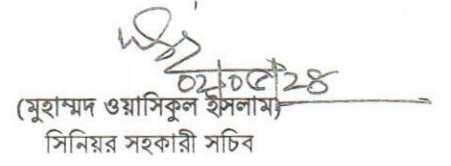 ০২/০৫/২৪
(মুহাম্মদ ওয়াসিকুল ইসলাম)
সিনিয়র সহকারী সচিব